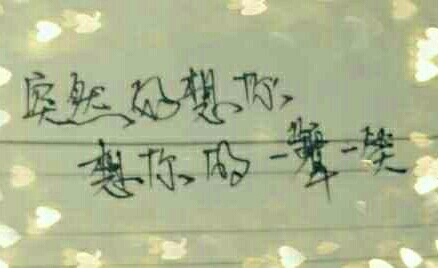 突然好想你、
想你的一颦一笑